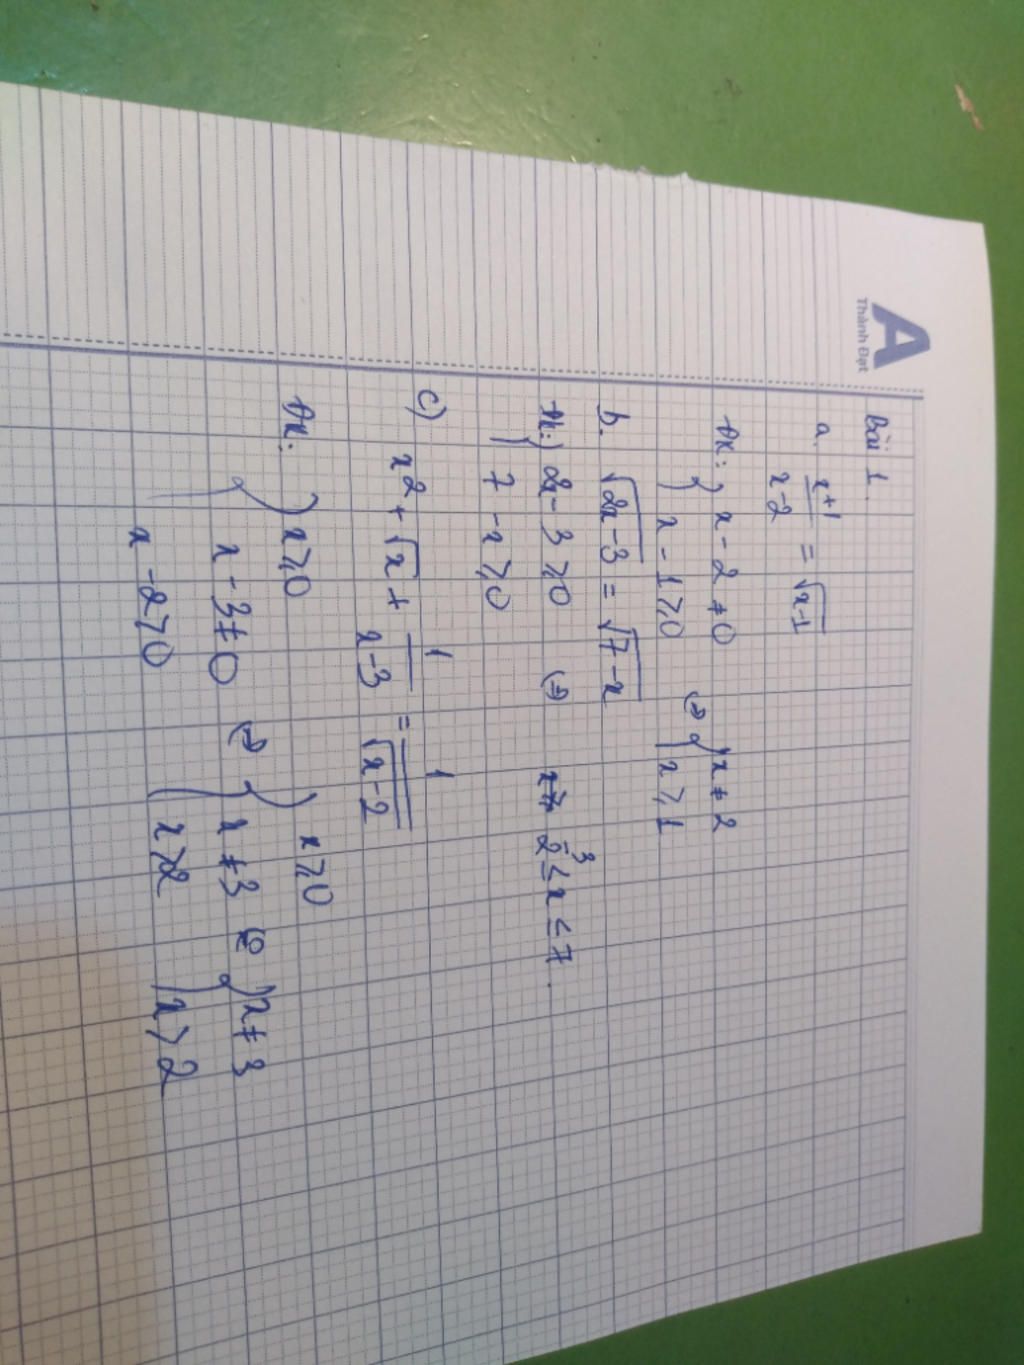 A
Thành Đạt
Bài 1.
a. x+1/x-2 = √x-1
ĐK: { x - 2 ≠ 0
{ x - 1 ≥ 0 (=) { x ≠ 2
{ x ≥ 1
b. √2x-3 = √7-x
ĐK: { 2x - 3 ≥ 0 (=) 3/2 ≤ x ≤ 7.
{ 7 - x ≥ 0
c) x2 + √x + 1/x-3 = 1/√x-2
ĐK: { x ≥ 0
x - 3 ≠ 0
x - 2 > 0 (=) { x ≥ 0
x ≠ 3
x > 2 (=) { x ≠ 3
x > 2